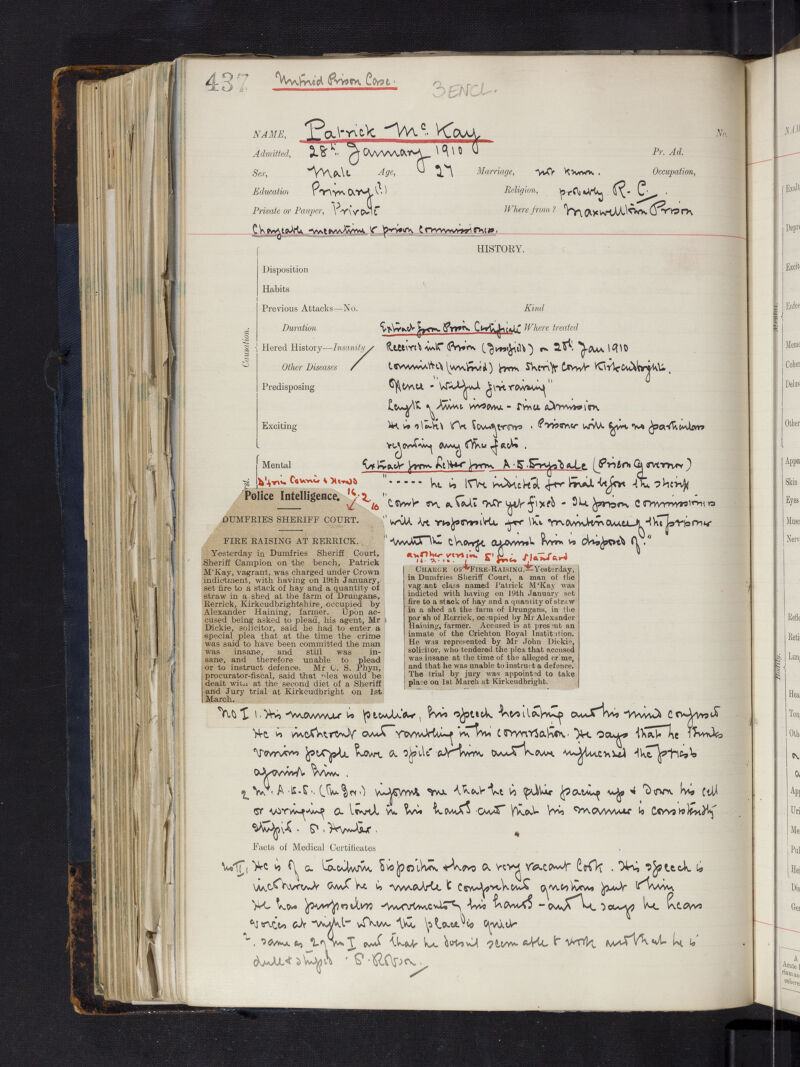 437 Untried Prison Case.
3 ENCL.
NAME, Patrick Mc. Kay No.
Admitted, 28th. January 1910 Pr. Ad.
Sex, Male Age, 27 Marriage, not known. Occupation,
Education Primary (?) Religion, probably R. C.
Private or Pauper, Private Where from? Maxwelltown Prison
Chargeable meantime to prison commissioners.
HISTORY.
Disposition
Habits
Previous Attacks—No. Kind
Duration Extract from Prison Certificate Where treated
Causation.
Hered History—Insanity Received into Prison (Dumfries) on 28th Jan 1910
Other Diseases committed (untried) from Sheriff Court Kirkcudbright.
Predisposing Offence - "Wilful fire raising"
Length of time insane - since admission
Exciting He is stated to be dangerous. Prisoner will give no particulars
regarding any other facts.
Mental Extract from Letter from A. S. Drysdale (Prison Governor)
"----- he is to be indicted for trial before the sheriff
"Court on a date not yet fixed - The prison commissioners
"will be responsible for the maintenance of the prisoner
"until the charge against him is disposed of."
D'fries Courier & Herald
16.2.10
Police Intelligence.
DUMFRIES SHERIFF COURT.
FIRE RAISING AT RERRICK.
Yesterday in Dumfries Sheriff Court,
Sheriff Campion on the bench, Patrick
M'Kay, vagrant, was charged under Crown
indictment, with having on 19th January,
set fire to a stack of hay and a quantity of
straw in a shed at the farm of Drungans,
Rerrick, Kirkcudbrightshire, occupied by
Alexander Haining, farmer. Upon ac-
cused being asked to plead, his agent, Mr
Dickie, solicitor, said he had to enter a
special plea that at the time the crime
was said to have been committed the man
was insane, and still was in-
sane, and therefore unable to plead
or to instruct defence. Mr C. S. Phyn,
procurator-fiscal, said that plea would be
dealt with at the second diet of a Sheriff
and Jury trial at Kirkcudbright on 1st
March.
another version D'fries Standard
16.2.10.
CHARGE OF FIRE-RAISING.—Yesterday,
in Dumfries Sheriff Court, a man of the
vagrant class named Patrick M'Kay was
indicted with having on 19th January set
fire to a stack of hay and a quantity of straw
in a shed at the farm of Drungans, in the
parish of Rerrick, occupied by Mr Alexander
Haining, farmer. Accused is at present an
inmate of the Crichton Royal Institution.
He was represented by Mr John Dickie,
solicitor, who tendered the plea that accused
was insane at the time of the alleged crime,
and that he was unable to instruct a defence.
The trial by jury was appointed to take
place on 1st March at Kirkcudbright.
No I 1. His manner is peculiar, his speech hesitating and his mind confused
He is incoherent and rambling in his conversation. He says that he thinks
various people have a spite at him and have influenced the priest
against him.
2 Mr. A. S. D. (The Gov.) informs me that he is either pacing up & down his cell
or wringing a towel in his hands and that his manner is consistently
stupid. D. Hunter.
Facts of Medical Certificates
No II, He is of a taciturn disposition & has a very vacant look. His speech is
incoherent and he is unable to comprehend questions put to him
He has purposeless movements of his hands - and he says he hears
voices at night when the place is quiet
2. same as 2 of No I and that he doesn't seem able to work and that he is
dull & stupid. D. Robson.